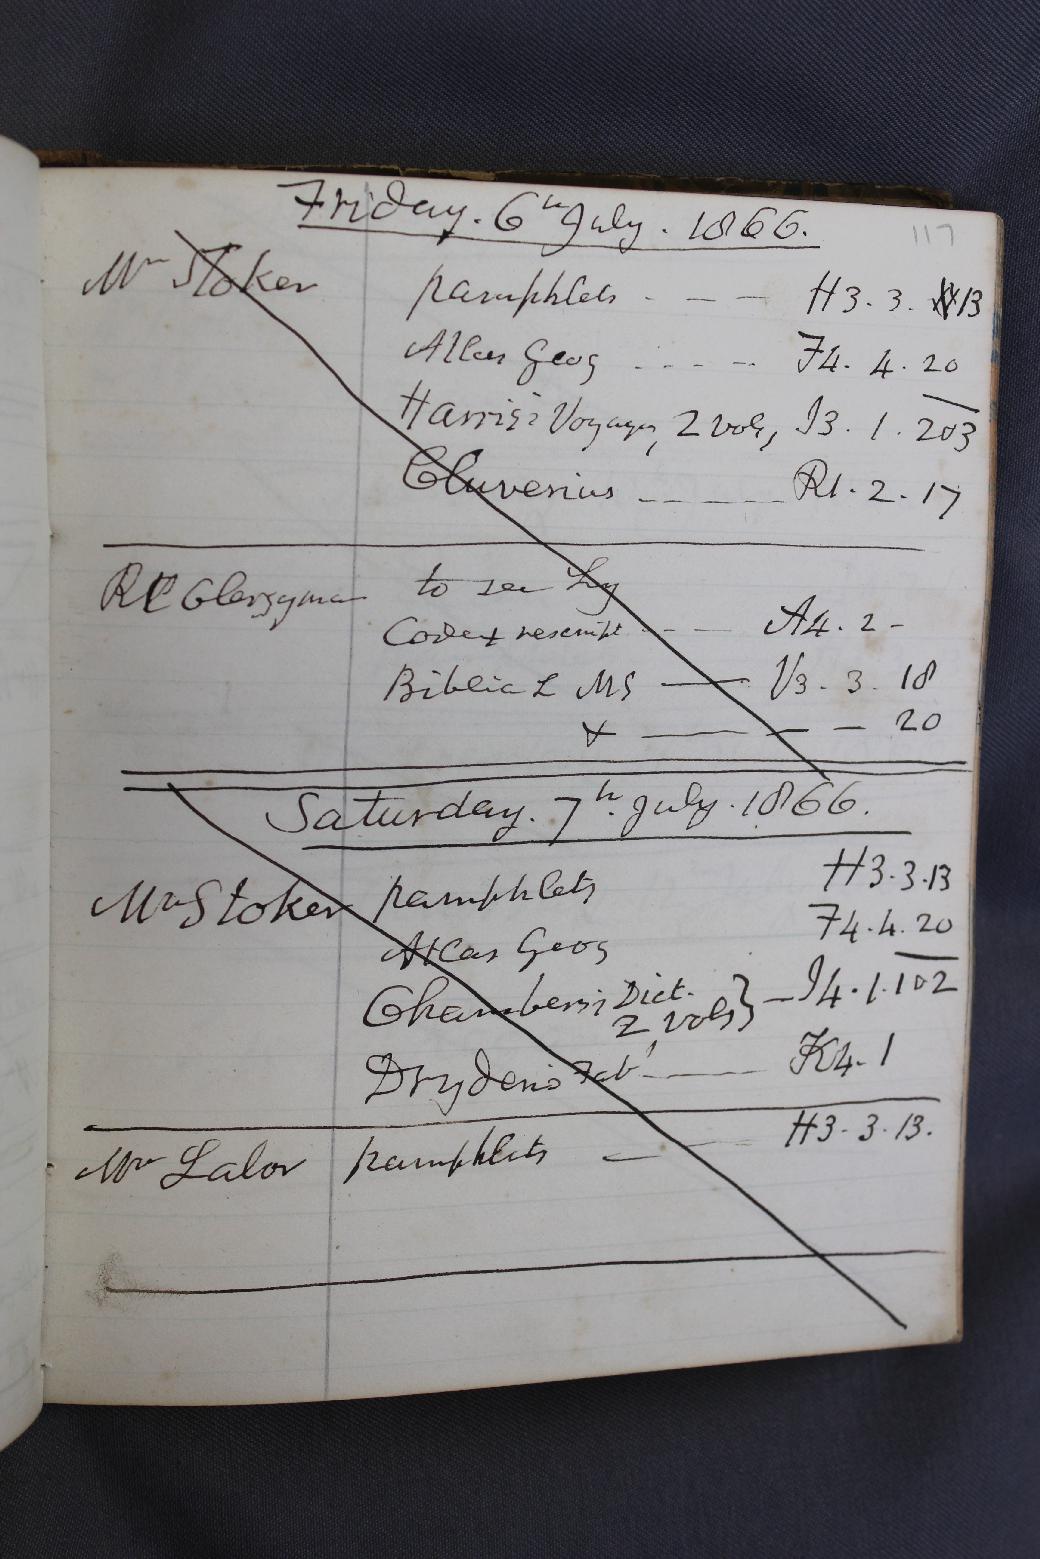 Friday. 6th July. 1866.
117
Mr Stoker pamphlets - - - H3. 3. 13
Atlas Geog - - - - F4. 4. 20
Harris's Voyages, 2 vols, I3. 1. 203
Cluverius - - - R1. 2. 17
RC Clergyman to see Lby
Codex rescript - - A4. 2 -
Biblia L MS — V3. 3. 18
— — — 20
Saturday. 7th. July. 1866.
Mr Stoker pamphlets H3. 3. 13
Atlas Geog F4. 4. 20
Chambers's Dict. 2 vols } - I4. 1. 102
Dryden's — K4. 1
Mr Lalor pamphlets — H3. 3. 13.